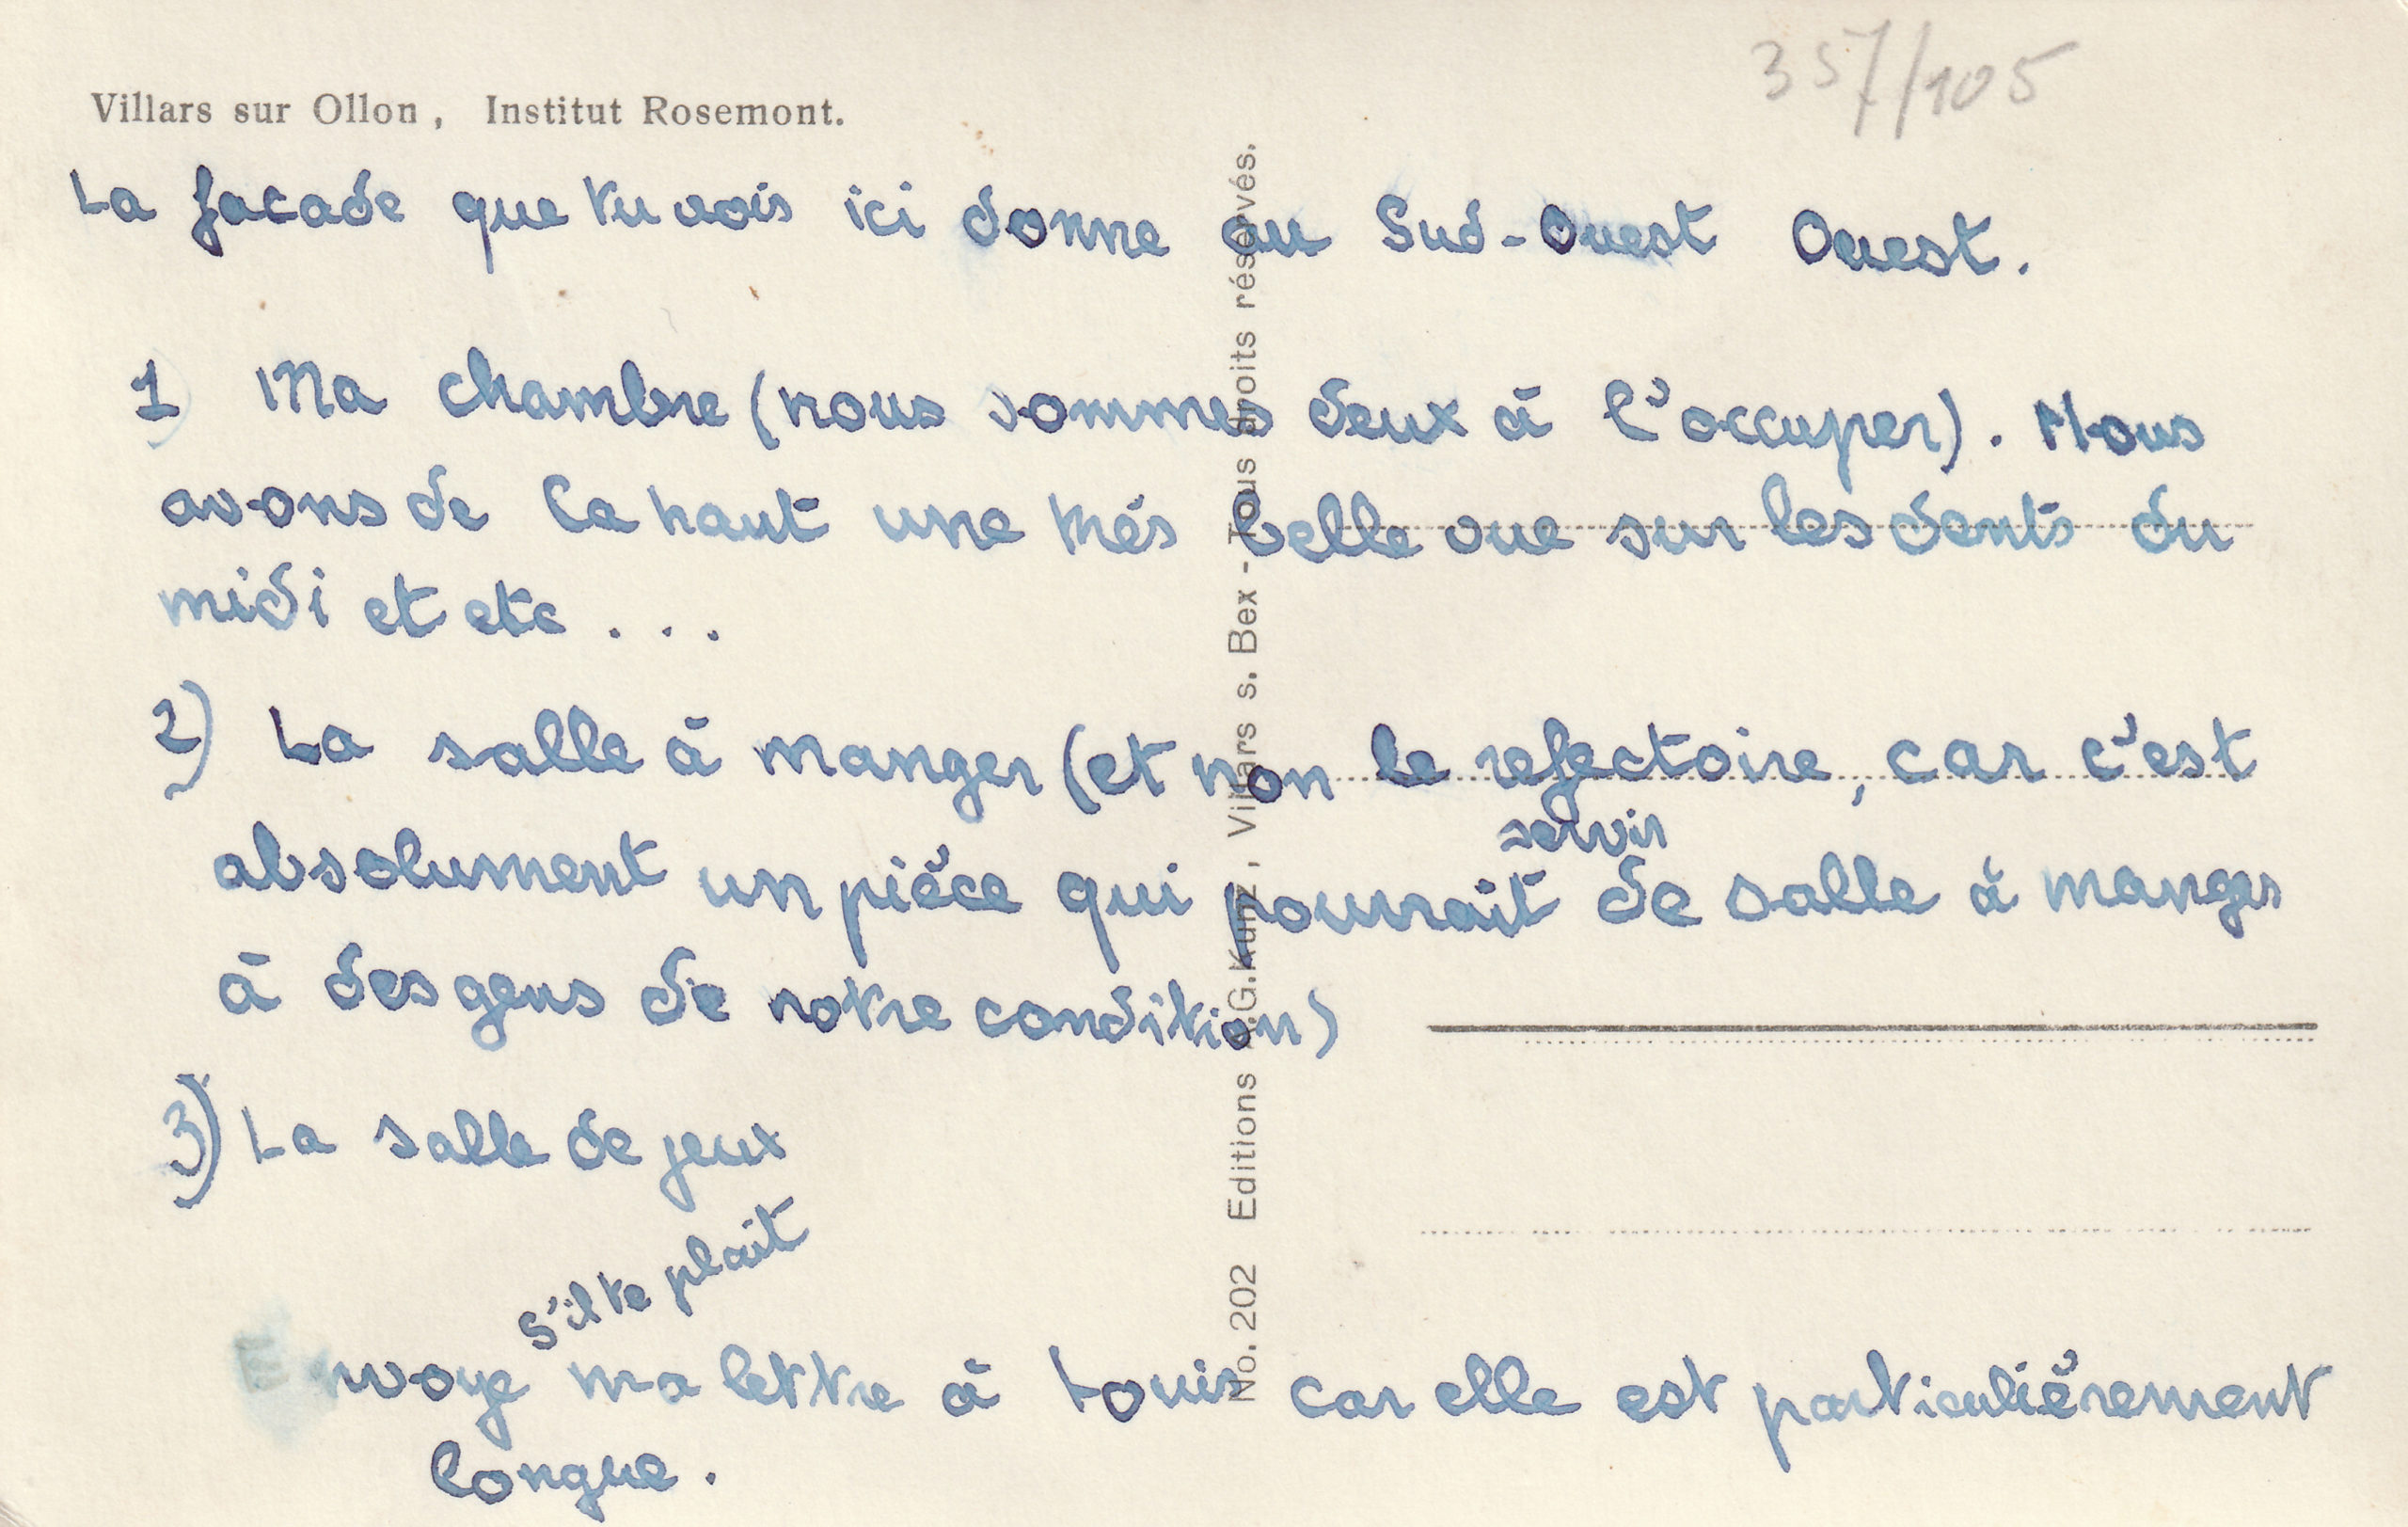 357/105
Villars sur Ollon, Institut Rosemont.
La facade que tu vois ici donne au Sud-Ouest Ouest.
1) Ma chambre (nous sommes deux à l'occuper). Nous
avons de la haut une très belle vue sur les dents du
midi et etc ...
2) La salle à manger (et non le refectoire, car c'est
absolument un pièce qui pourrait servir de salle à manger
à des gens de notre condition)
3) La salle de jeux
s'il te plait
Envoye ma lettre à Louis car elle est particulièrement
longue.
No. 202 Editions A.G. Kunz, Villars s. Bex - Tous droits réservés.